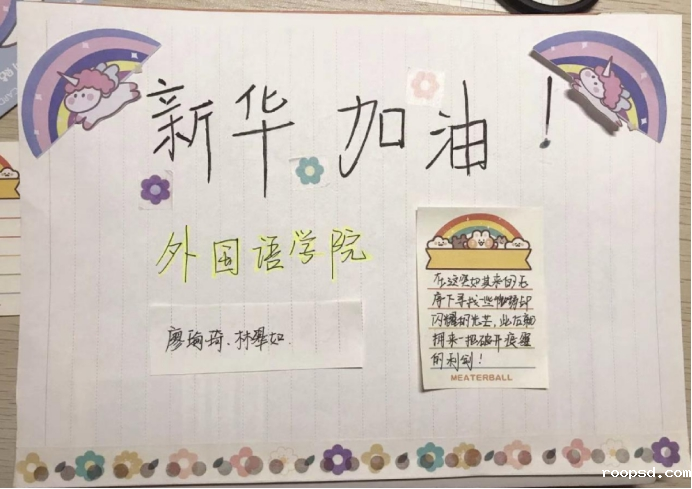 新华加油！
外国语学院
廖瑜琦、林翠如.
在这突如其来的石
闪耀的光芒，此后就
拥来一把破开疫霾
的利剑！
MEATERBALL
roopsd.com